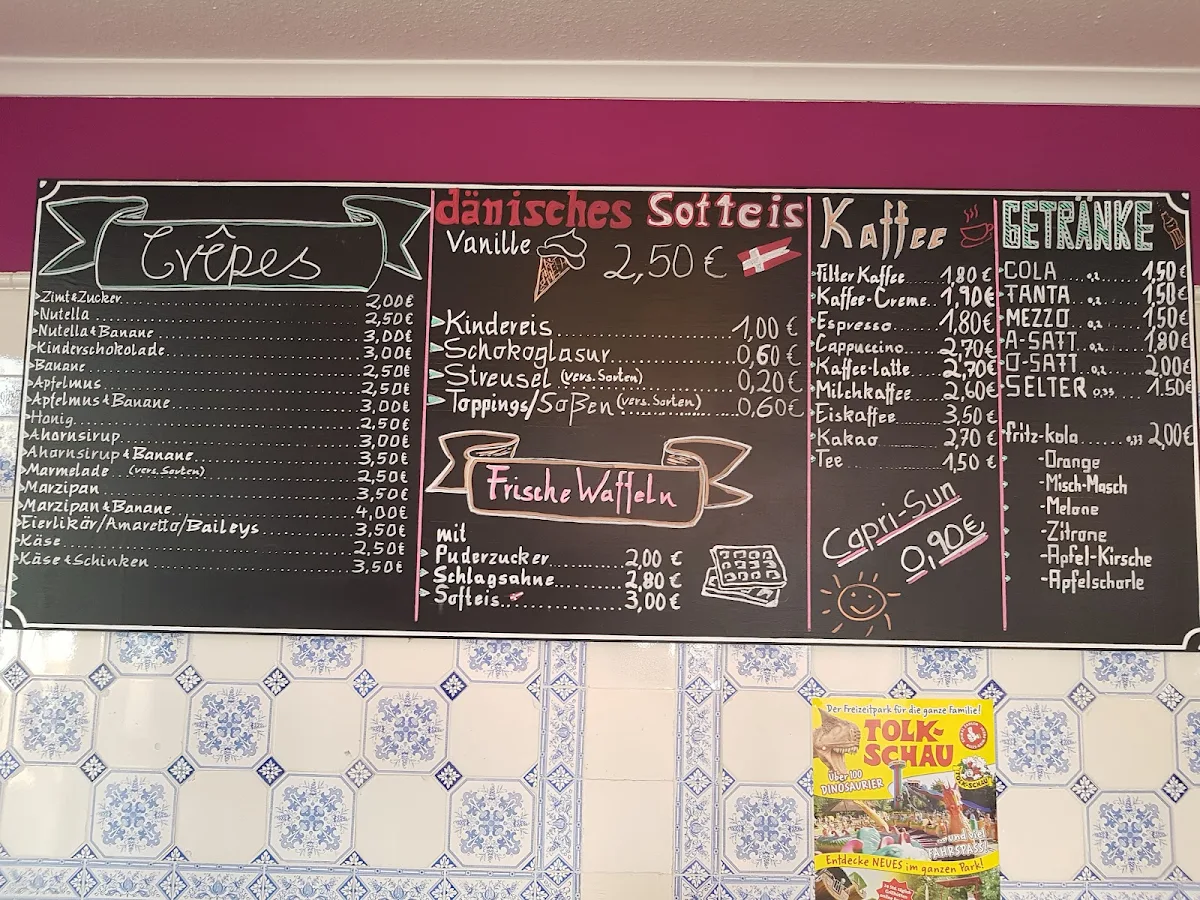 Crêpes
Zimt & Zucker 2,00€
Nutella 2,50€
Nutella & Banane 3,00€
Kinderschokolade 3,00€
Banane 2,50€
Apfelmus 2,50€
Apfelmus & Banane 3,00€
Honig 2,50€
Ahornsirup 3,00€
Ahornsirup & Banane 3,50€
Marmelade (vers. Sorten) 2,50€
Marzipan 3,50€
Marzipan & Banane 4,00€
Eierlikör/Amaretto/Baileys 3,50€
Käse 2,50€
Käse & Schinken 3,50€
dänisches Softeis
Vanille 2,50 €
Kindereis 1,00 €
Schokoglasur 0,60 €
Streusel (vers. Sorten) 0,20 €
Toppings/Soßen (vers. Sorten) 0,60€
Frische Waffeln
mit
Puderzucker 2,00 €
Schlagsahne 2,80 €
Softeis 3,00 €
Kaffee
Filter Kaffee 1,80 €
Kaffee-Creme 1,90€
Espresso 1,80€
Cappuccino 2,70€
Kaffee-latte 2,70€
Milchkaffee 2,60€
Eiskaffee 3,50 €
Kakao 2,70 €
Tee 1,50 €
Capri-Sun
0,90€
GETRÄNKE
COLA 0,2 1,50€
TANTA 0,2 1,50€
MEZZO 0,2 1,50€
A-SAFT 0,2 1,80€
O-SAFT 0,2 2,00€
SELTER 0,33 1.50€
fritz-kola 0,33 2,00€
-Orange
-Misch-Masch
-Melone
-Zitrone
-Apfel-Kirsche
-Apfelschorle
Der Freizeitpark für die ganze Familie!
TOLK-
SCHAU
Über 100
DINOSAURIER
...und viel
FAHRSPASS!
Entdecke NEUES im ganzen Park!